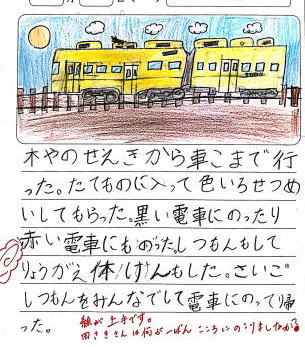 木やのせんきから車こまで行
った。たてものに入って色いろせつめ
いしてもらった。黒い電車にのったり
赤い電車にものった。しつもんもして
りょうがえ体けんもした。さいご
しつもんをみんなでして電車にのって帰
った。
絵が上手です。
田さきさんは何が一ばんこころにのこりましたか？